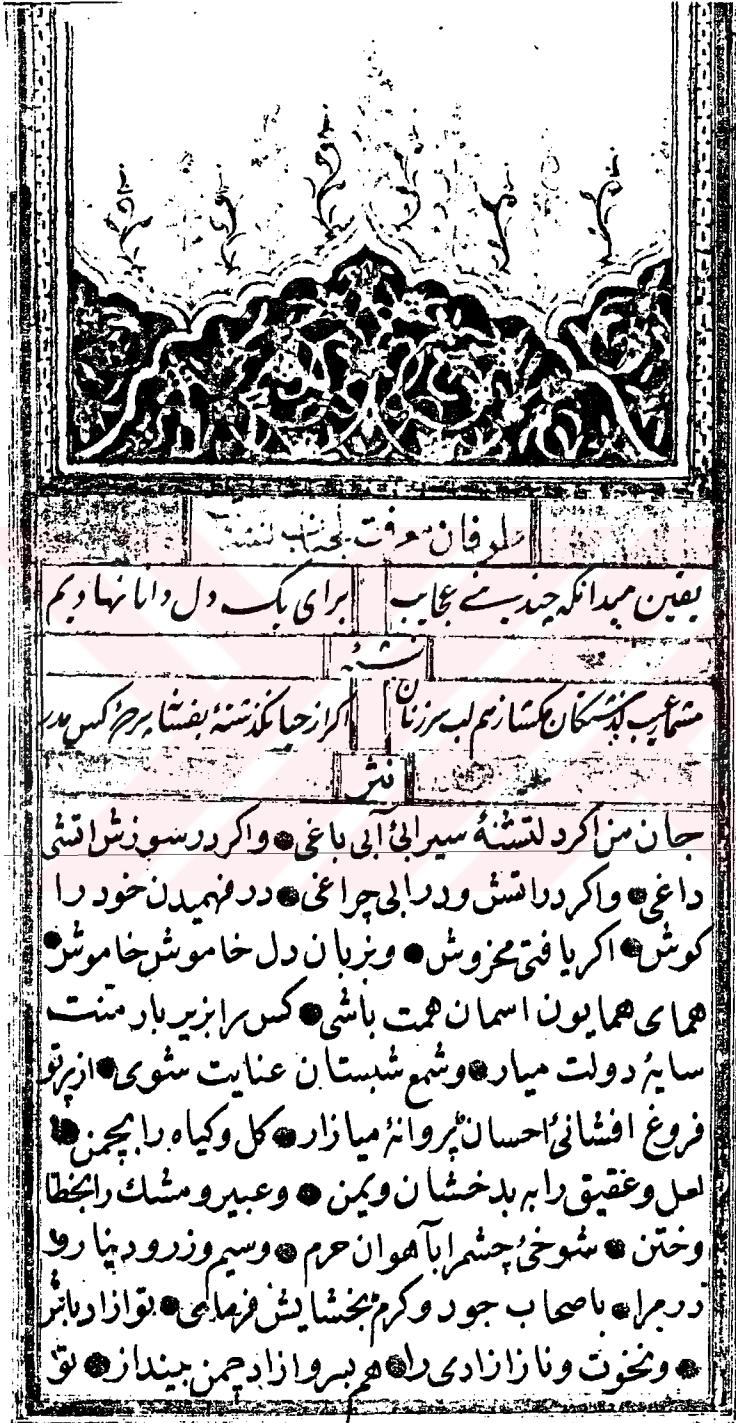 یقین میدانکه چند بنے عجایب برای یک دل دانا نهادیم
نشئه
نثر
جان من اکر دلتشنهٔ سیرابیٔ آبی باغی واکر در سوزش اتشی
داغی واکر در اتش و در ابی چراغی در فهمیدن خود را
کوش اکر یافتی مخروش وبزبان دل خاموش خاموش
همای همایون اسمان همت باشی کس را بزیر بار منت
سایهٔ دولت میار وشمع شبستان عنایت شوی از پرتو
فروغ افشانیٔ احسان پروانهٔ میازار کل وکیاه را بچمن
لعل وعقیق را به بدخشان ویمن وعبیر ومشك را بخطا
وختن شوخیٔ چشم را بآهوان حرم وسیم وزر ودینار و
درم را باصحاب جود وکرم بخشایش فرمای تو ازاد باش
ونخوت وناز ازادی را هم بسرو ازاد چمن بینداز تو